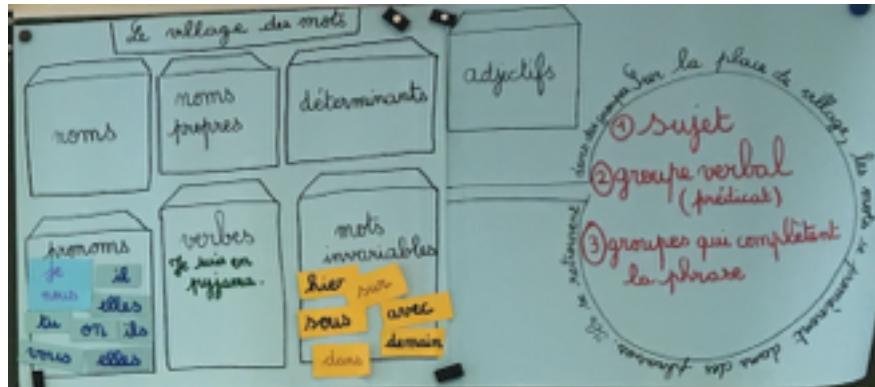 Le village des mots
noms
noms
propres
déterminants
adjectifs
pronoms
je
nous
il
elles
tu
on
ils
vous
elles
verbes
Je suis en
pyjama.
mots
invariables
hier
sur
sous
avec
demain
dans
Sur la place du village, les mots se promènent dans des phrases. Ils se retrouvent dans des groupes
① sujet
② groupe verbal
(prédicat)
③ groupes qui complètent
la phrase